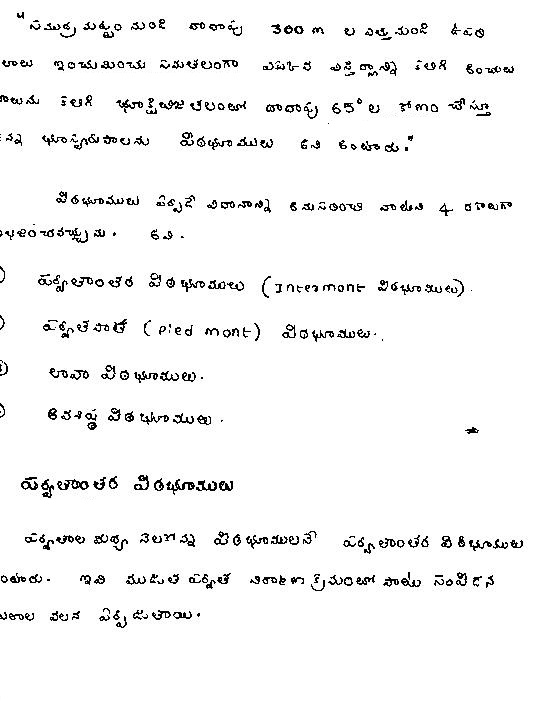 "సముద్ర మట్టం నుండి దాదాపు 300 m ల ఎత్తు నుండి ఉపరి
తలాలు ఇంచుమించు సమతలంగా ఎక్కువ విస్తీర్ణాన్ని కలిగి అంచులు
కలిగి భూక్షితిజ తలంలో దాదాపు 65° ల కోణం చేస్తూ
ఉన్న భూస్వరూపాలను పీఠభూములు అని అంటారు."
పీఠభూములు ఏర్పడే విధానాన్ని అనుసరించి వాటిని 4 రకాలుగా
విభజించవచ్చును. అవి.
పర్వతాంతర పీఠభూములు (Intermont పీఠభూములు).
పర్వతపాద (Pied mont) పీఠభూములు.
లావా పీఠభూములు.
అవశిష్ట పీఠభూములు.
పర్వతాంతర పీఠభూములు
పర్వతాల మధ్య నెలకొన్న పీఠభూములనే పర్వతాంతర పీఠభూములు
అంటారు. ఇవి ముడుత పర్వత క్రమంలో పాటు సంభవించిన
వలన ఏర్పడుతాయి.